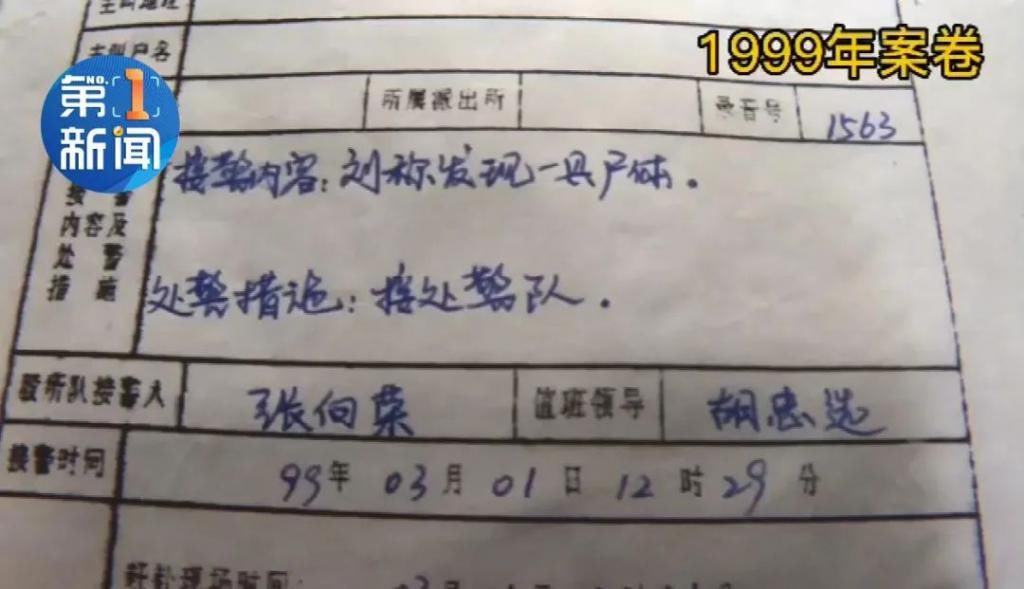 主叫地理
1999年案卷
主叫户名
NO.
第1
新闻
所属派出所
录音号
1563
接警
内容及
处警
措施
接警内容：刘称发现一具尸体。
处警措施：接处警队。
股所队接警人
张向荣
值班领导
胡忠选
接警时间
99年03月01日12时29分
赶赴现场时间：